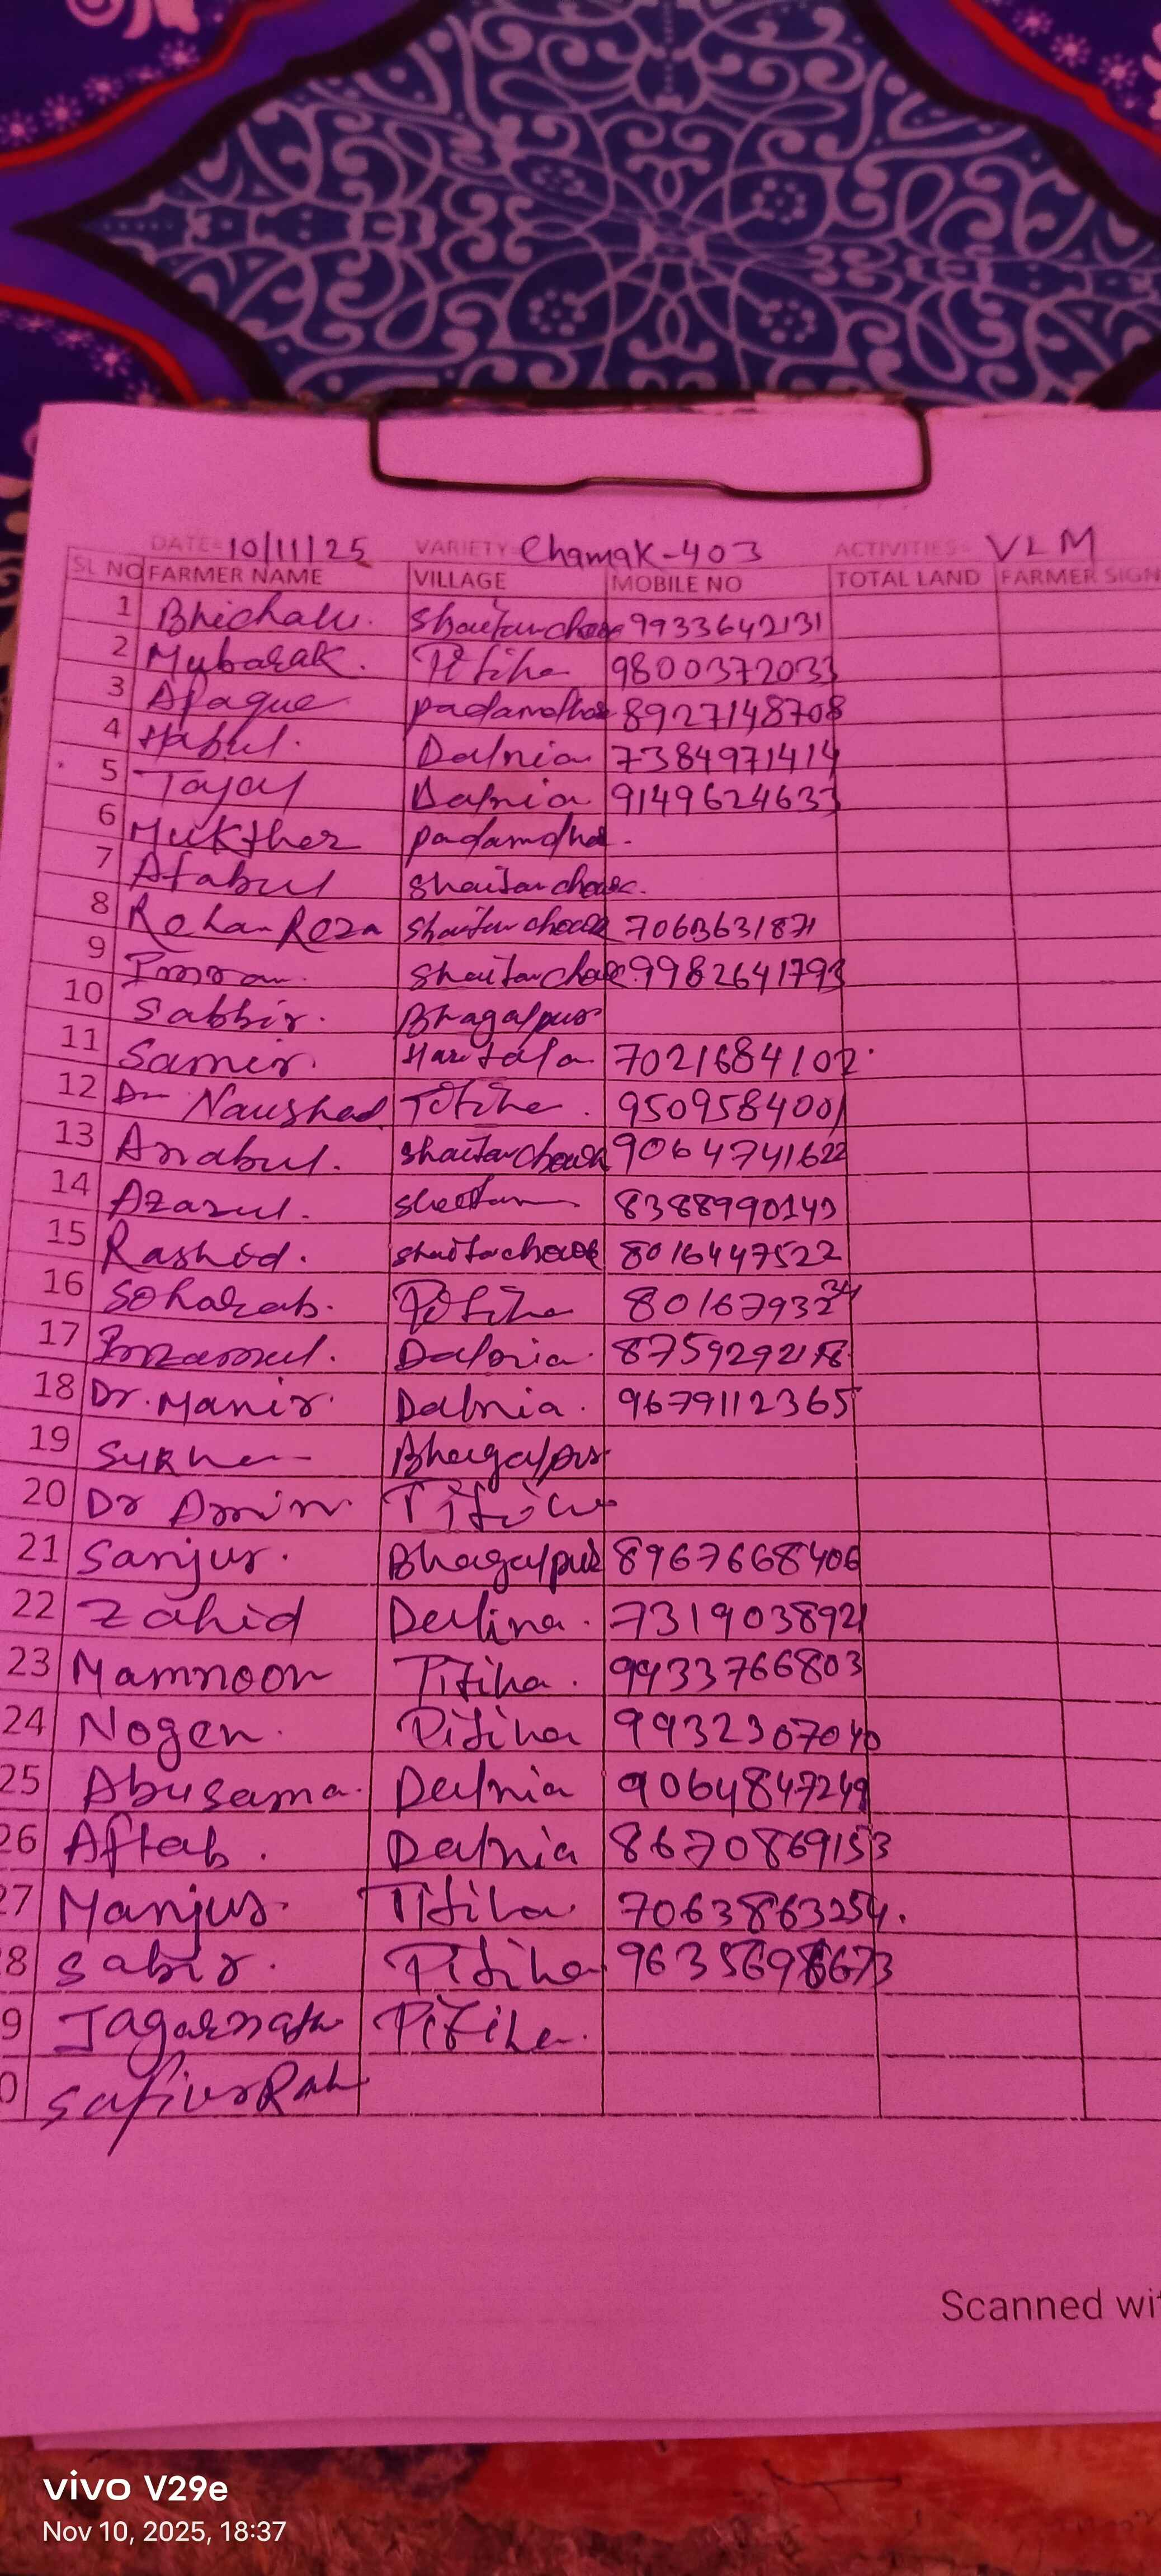 DATE= 10/11/25 VARIETY= Chamak-403 ACTIVITIES= VLM
SL NO FARMER NAME VILLAGE MOBILE NO TOTAL LAND FARMER SIGN
1 Bhichalu. Shaitanchowk 9933642131
2 Mubarak. Titiha 9800372033
3 Afaque padamdhar 8927148708
4 Habul. Dalnia 7384971414
5 Tajay Dalnia 9149624633
6 Mukther padamdhar.
7 Afabul Shaitanchowk.
8 Rehan Reza Shaitanchowk
9 Imran. Shaitanchowk. 9982641793
10 Sabbir. Bhagalpur
11 Samir. Haritala 7021684102
12 Dr Naushad Titiha. 9509584001
13 Anabul. Shaitanchowk 9064741622
14 Azazul.
15 Rashid. Shaitanchowk 8016447522
16 Soharab. Titiha
17 Inzamul. Dalnia.
18 Dr. Manir. Dalnia. 9679112365
19 Bhagalpur
20 Dr Amin Titiha
21 Sanjur. Bhagalpur 8967668406
22 Zahid Dalina. 7319038921
23 Mamnoon Titiha. 9933766803
24 Nogen. Titiha 9932307040
25 Abusama. Dalnia 9064847249
26 Aftab. Dalnia 8670869153
27 Manjur. Titiha 7063863254.
28 Sabir. Titiha
9 Jagarnath Titiha.
0 SafiurRah
Scanned wit
vivo V29e
Nov 10, 2025, 18:37